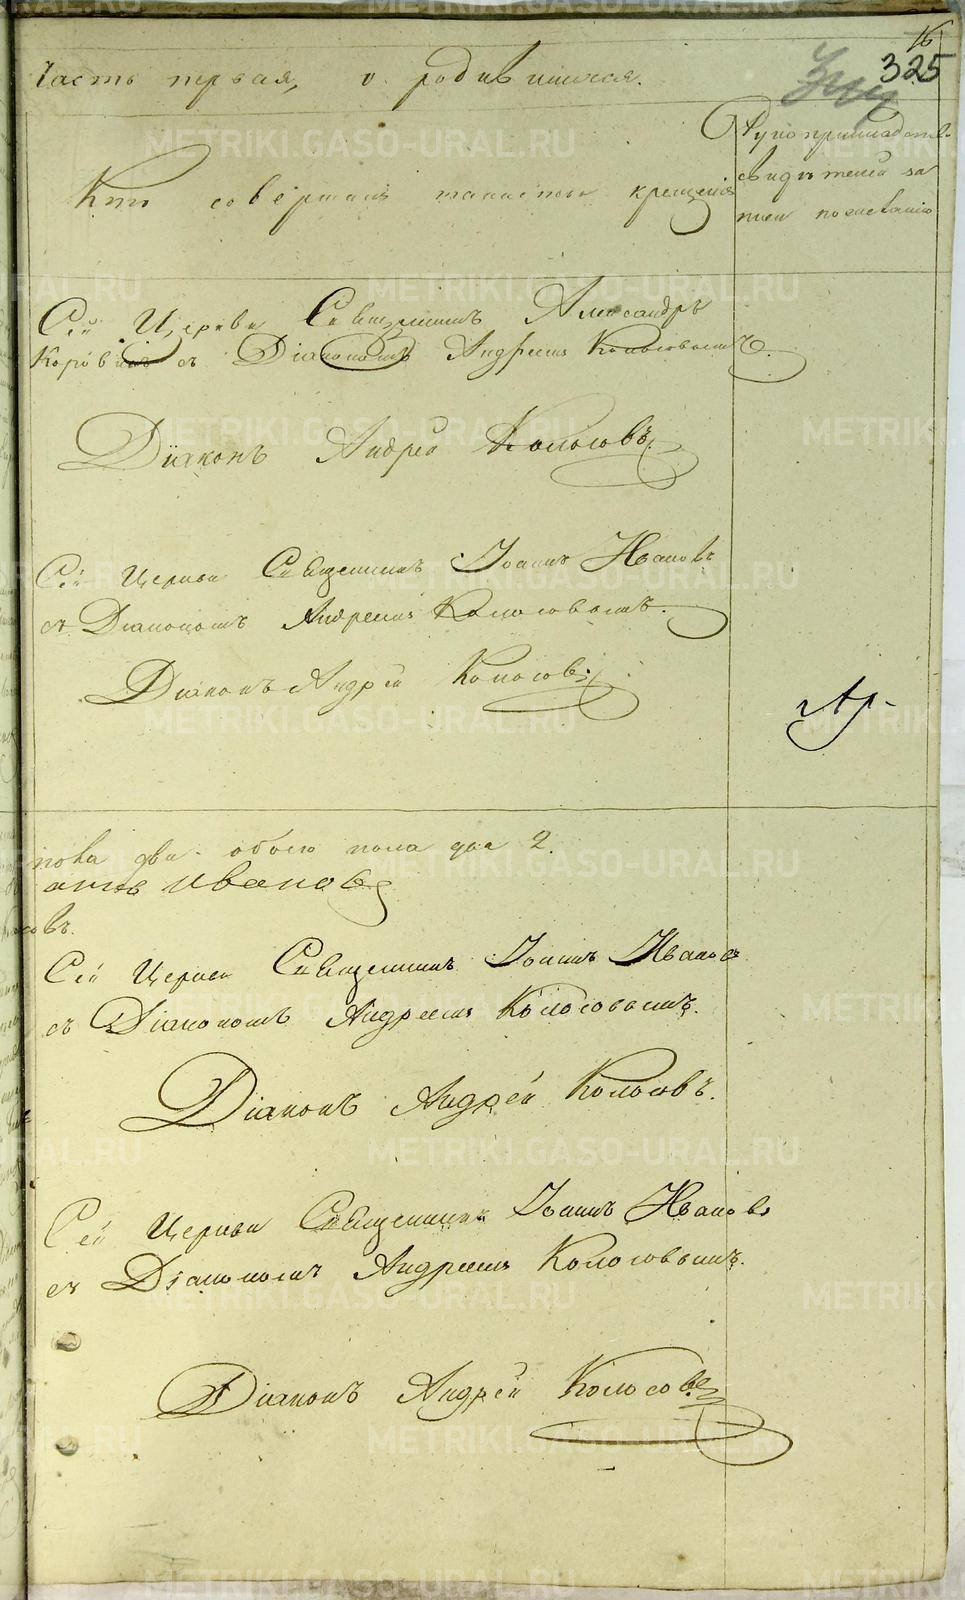 16
325
Часть первая, о родившихся.
Кто совершалъ таинство крещенія
Рукоприкладство
свидѣтелей за
писи по желанію
Сей Церкви Священникъ Александръ
Коровинъ съ Діакономъ Андреемъ Колосовымъ.
Діаконъ Андрей Колосовъ
Сей Церкви Священникъ Іоаннъ Ивановъ
съ Діакономъ Андреемъ Колосовымъ.
Діаконъ Андрей Колосовъ
пола два. обоего пола два 2.
Ивановъ
Сей Церкви Священникъ Іоаннъ Ивановъ
съ Діакономъ Андреемъ Колосовымъ.
Діаконъ Андрей Колосовъ.
Сей Церкви Священникъ Іоаннъ Ивановъ
съ Діакономъ Андреемъ Колосовымъ.
Діаконъ Андрей Колосовъ
METRIKI.GASO-URAL.RU